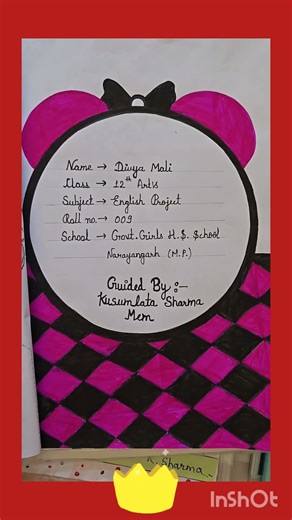 Name → Divya Mali
Class → 12th Arts
Subject → English Project
Roll no. → 009
School → Govt. Girls H.S. School
Narayangarh (M.P.)
Guided By :-
Kusumlata Sharma
Mem
K. Sharma
InShOt